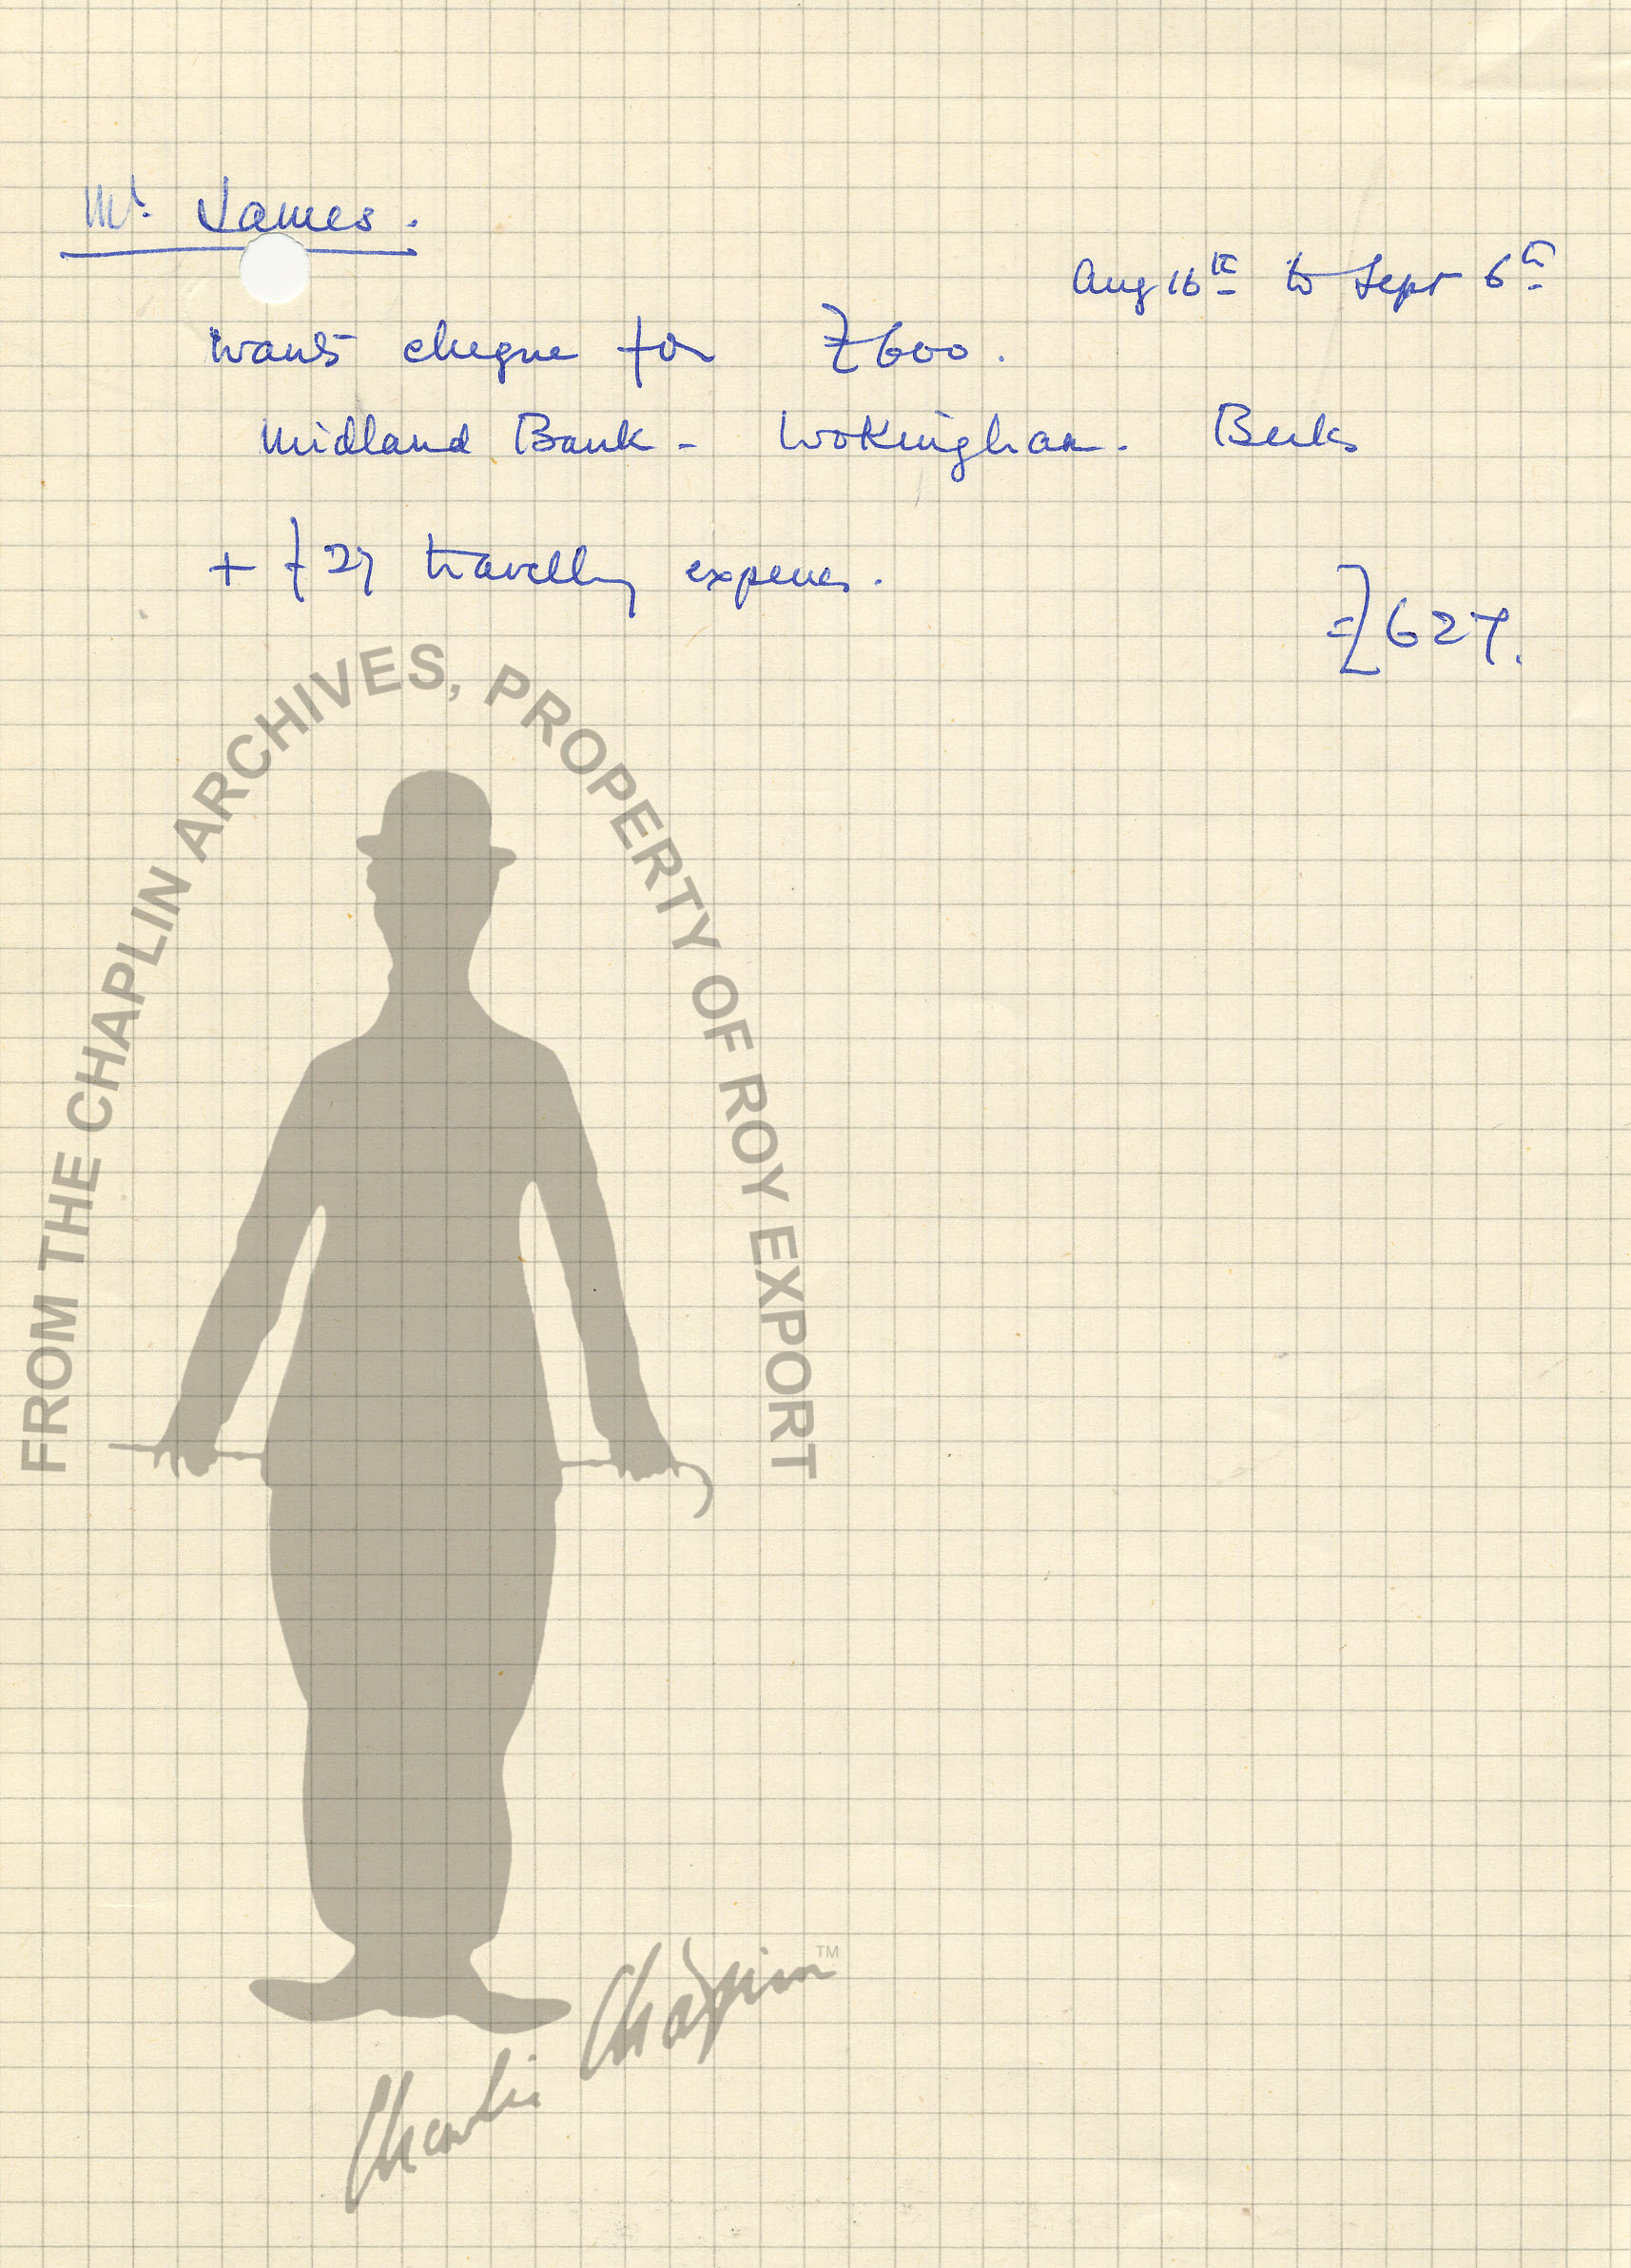 Mr. James.
Aug 16th to Sept 6th
wants cheque for £600.
Midland Bank - Wokingham. Berks
+ £27 travelling expenses.
= £627.
FROM THE CHAPLIN ARCHIVES, PROPERTY OF ROY EXPORT
Charlie Chaplin TM